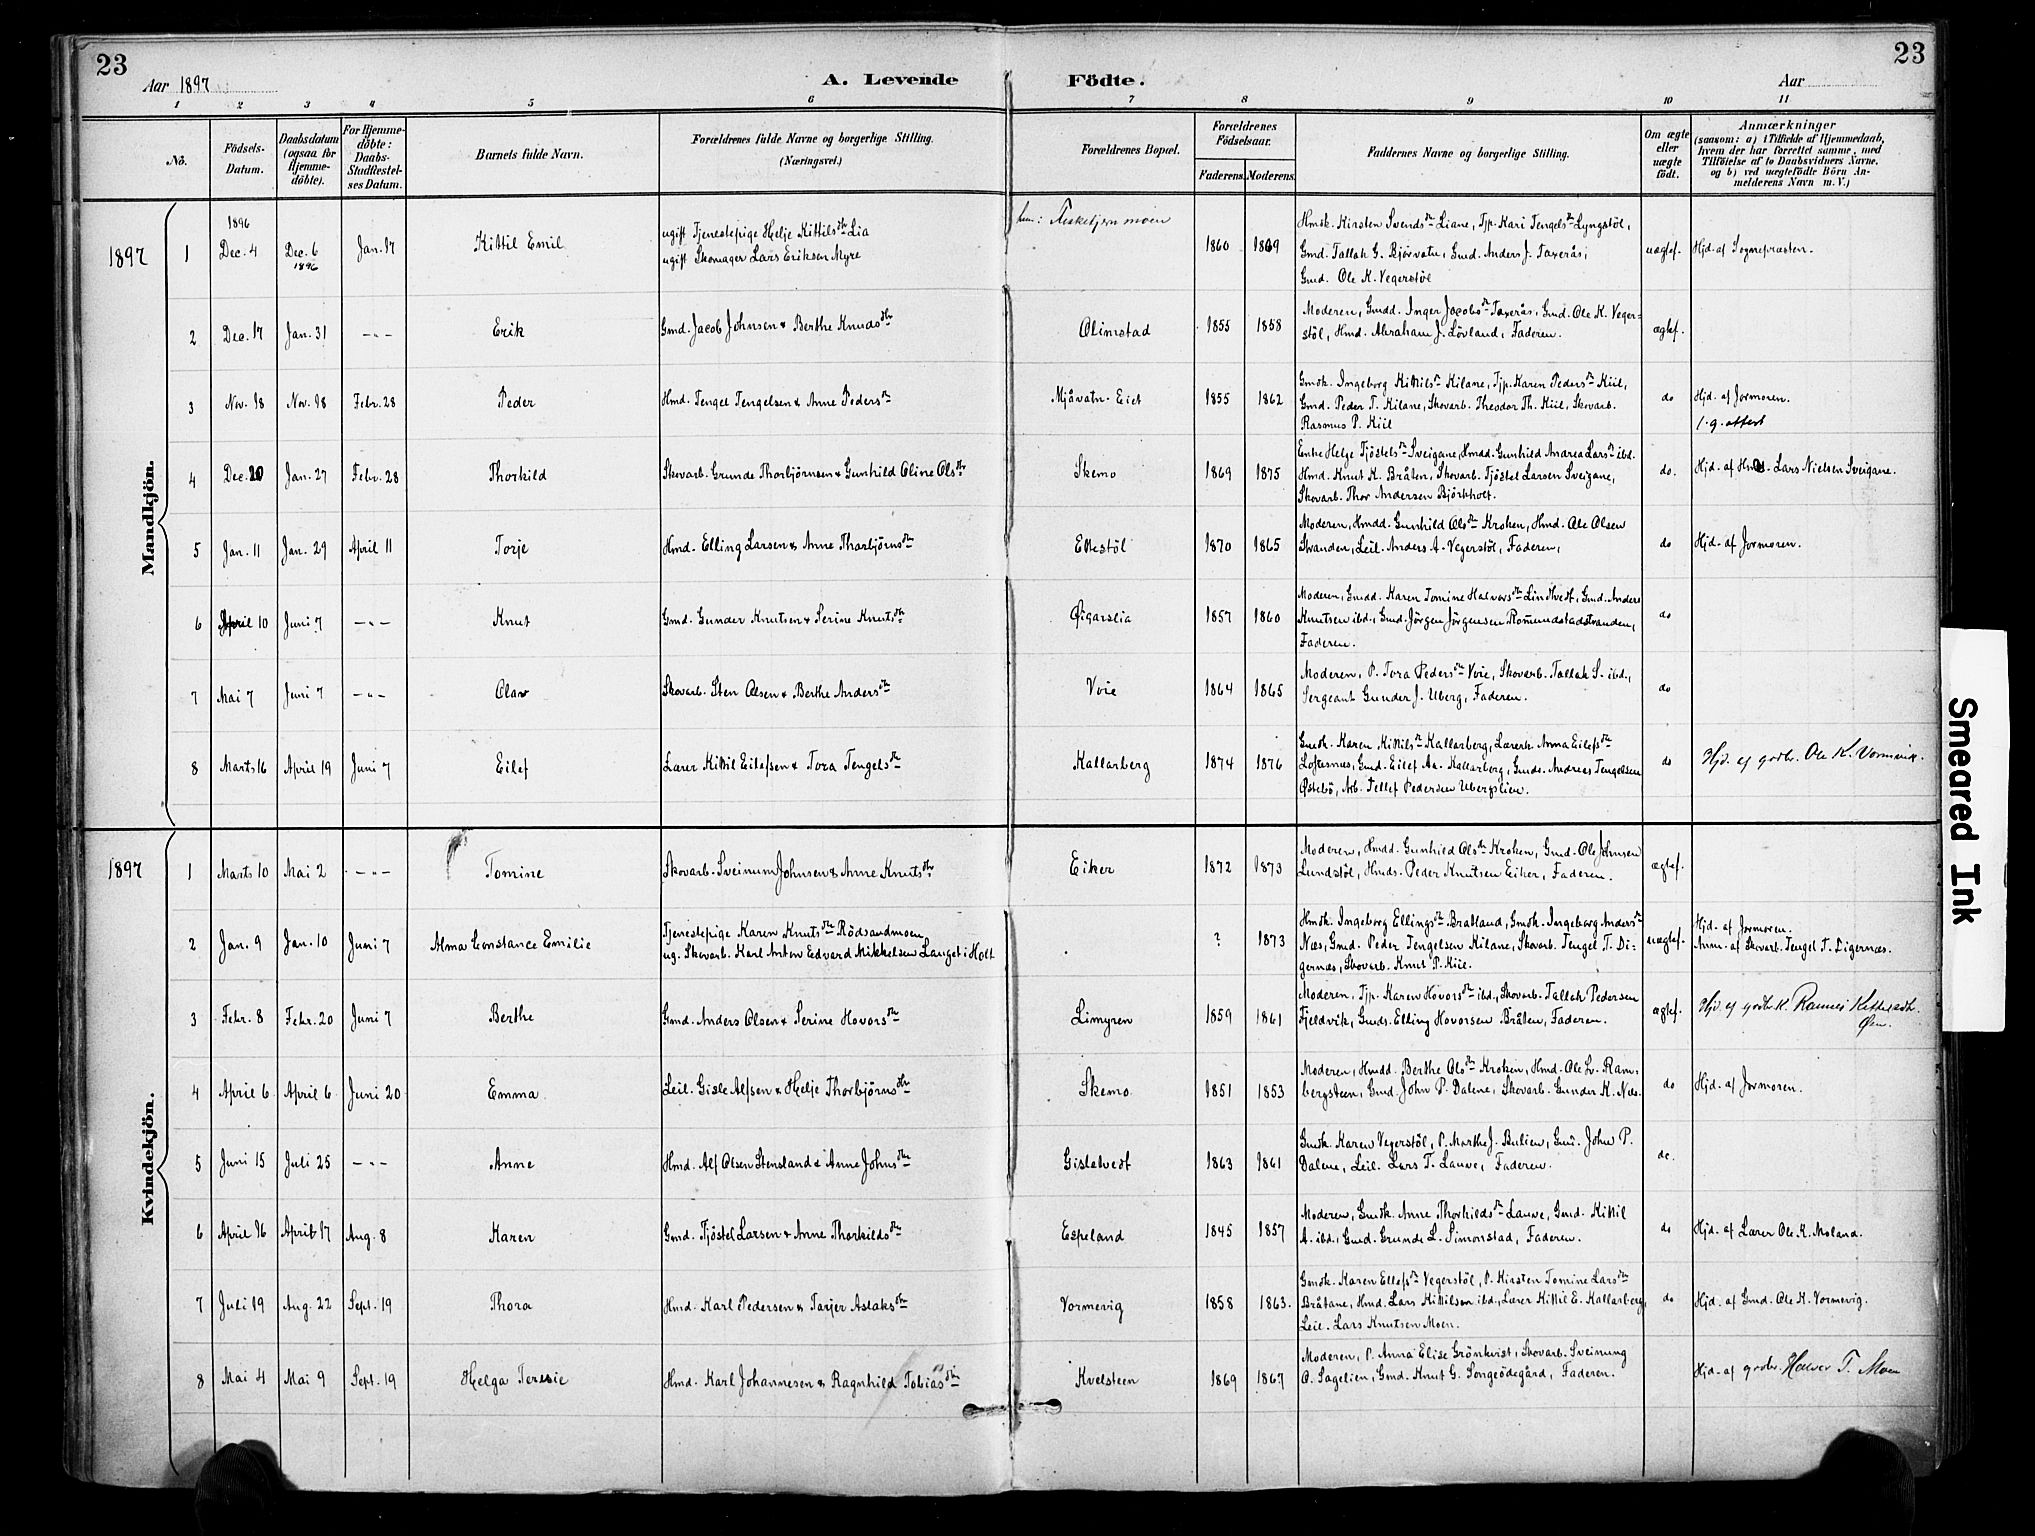 23
23
Aar 1897
A. Levende Födte.
Aar
1 2 3 4 5 6 7 8 9 10 11
No.
Födsels-Datum.
Daabsdatum (ogsaa for Hjemme-döbte).
For Hjemme-döbte: Daabs-Stadfæstel-ses Datum.
Barnets fulde Navn.
Forældrenes fulde Navne og borgerlige Stilling.
(Næringsvei.)
Forældrenes Bopæl.
Forældrenes Födselsaar.
Faderens. Moderens.
Faddernes Navne og borgerlige Stilling.
Om ægte eller uægte födt.
Anmærkninger
(saasom: a) i Tilfælde af Hjemmedaab, hvem der har forrettet samme, med Tilföielse af to Daabsvidners Navne, og b) ved uægtefödte Börn An-melderens Navn m. V.)
Mandkjön.
1897
1 1896 Dec. 4 Dec. 6 1896 Jan. 17 Kittil Emil
ugift Tjenestepige Helje Kittilsdtr Lia
ugift Skomager Lars Eriksen Myre
1860 1869
Hmdk. Kirsten Svendsdtr Liane, Tjp. Kari Tengelsdtr Lyngstöl,
Gmd. Tallak G. Bjorvatn, Gmd. Anders J. Taxerås,
Gmd. Ole K. Vegerstöl
uægtef. Hjd. af Sognepræsten.
2 Dec. 17 Jan. 31 -"- Erik
Gmd. Jacob Johnsen & Berthe Knudsdtr
Olimstad 1855 1858
Moderen, Gmdd. Inger Jacobsdtr Taxerås, Gmd. Ole K. Veger-
stöl, Hmd. Abraham J. Lövland, Faderen.
ægtef.
3 Nov. 18 Nov. 18 Febr. 28 Peder
Hmd. Tengel Tengelsen & Anne Pedersdtr
Mjåvatn-Eiet 1855 1862
Gmdk. Ingeborg Kittilsdtr Kilane, Tjp. Karen Pedersdtr Kiil,
Gmd. Peder T. Kilane, Skovarb. Theodor Th. Kiil, Skovarb.
Rasmus P. Kiil
do Hjd. af Jormoren.
4 Dec. 20 Jan. 27 Febr. 28 Thorkild
Skovarb. Grunde Thorbjörnsen & Gunhild Oline Olsdtr
Skemo 1869 1875
Enke Helge Tjöstelsdtr Sveigane, Hmdd. Gunhild Andrea Larsdtr ibd.
Hmd. Knut K. Bråten, Skovarb. Tjöstel Larsen Sveigane,
Skovarb. Thor Andersen Björkholt.
do. Hjd. af Hmd. Lars Nielsen Sveigane.
5 Jan. 11 Jan. 29 April 11 Torje
Hmd. Elling Larsen & Anne Thorbjörnsdtr
Ettestöl 1870 1865
Moderen, Hmdd. Gunhild Olsdtr Kroken, Hmd. Ole Olsen
Stranden, Leil. Anders A. Vegerstöl, Faderen,
do Hjd. af Jormoren.
6 April 10 Juni 7 -"- Knut
Gmd. Gunder Knutsen & Serine Knutsdtr
Øigarslia 1857 1860
Moderen, Gmdd. Karen Tomine Halvorsdtr Lindtveit, Gmd. Anders
Knutsen ibd., Gmd. Jörgen Jörgensen Romundstadstranden,
Faderen.
do
7 Mai 7 Juni 7 -"- Olav
Skovarb. Sten Olsen & Berthe Andersdtr
Voie 1864 1865
Moderen, P. Tora Pedersdtr Voie, Skovarb. Tallak S. ibd.,
Sergeant Gunder J. Uberg, Faderen.
do
8 Marts 16 April 19 Juni 7 Eilef
Lærer Kittil Eilefsen & Tora Tengelsdtr
Kallarberg 1874 1876
Gmdk. Karen Kittilsdtr Kallarberg, Lærerk. Anna Eilefsdtr
Loftesnes, Gmd. Eilef Aa. Kallarberg, Gmds. Andreas Tengelsen
Østebö, Arb. Tellef Pedersen Ubergslien.
do Hjd. af grdbr. Ole K. Vormvik.
Kvindekjön.
1897
1 Marts 10 Mai 2 -"- Tomine
Skovarb. Sveinum Johnsen & Anne Knutsdtr
Eiker 1872 1873
Moderen, Hmdd. Gunhild Olsdtr Kroken, Gmd. Ole Johnsen
Lundstöl, Hmds. Peder Knutsen Eiker, Faderen.
ægtef.
2 Jan. 9 Jan. 10 Juni 7 Alma Constance Emilie
Tjenestepige Karen Knutsdtr Rödsandmoen
ug. Skovarb. Karl Anton Edvard Mikkelsen Langet i Holt
? 1873
Hmdk. Ingeborg Ellingsdtr Bratland, Gmdk. Ingeborg Andersdtr
Næs, Gmd. Peder Tengelsen Kilane, Skovarb. Tengel T. Di-
gernæs, Skovarb. Knut P. Kiil.
uægtef. Hjd. af Jormoren.
Anm. af Skovarb. Tengel T. Digernæs.
3 Febr. 8 Febr. 20 Juni 7 Berthe
Gmd. Anders Olsen & Serine Hovorsdtr
Limyren 1859 1861
Moderen, Tjp. Karen Hovorsdtr ibd., Skovarb. Tallak Pedersen
Fjeldvik, Gmds. Elling Hovorsen Bråten, Faderen.
ægtef.
4 April 6 April 6 Juni 20 Emma
Leil. Gisle Alfsen & Helje Thorbjörnsdtr
Skemo 1851 1853
Moderen, Hmdd. Berthe Olsdtr Kroken, Hmd. Ole Lv. Ram-
bergsteen, Gmd. John P. Dalene, Skovarb. Gunder K. Næs.
do Hjd. af Jormoren.
5 Juni 15 Juli 25 -"- Anne
Hmd. Alf Olsen Stensland & Anne Johnsdtr
Gisletvedt 1863 1861
Gmdk. Karen Vegerstöl, P. Marthe J. Bulien, Gmd. John P.
Dalene, Leil. Lars T. Lauve, Faderen.
do.
6 April 16 April 17 Aug. 8 Karen
Gmd. Tjöstel Larsen & Anne Thorkildsdtr
Espeland 1845 1857
Moderen, Gmdk. Anne Thorkildsdtr Lauve, Gmd. Kittil
A. ibd., Gmd. Grunde L. Simonstad, Faderen.
do Hjd. af Lærer Ole K. Moland.
7 Juli 19 Aug. 22 Sept. 19 Thora
Hmd. Karl Pedersen & Tarjer Aslaksdtr
Vormevig 1858 1863.
Gmdk. Karen Ellefsdtr Vegerstöl, P. Kirsten Tomine Larsdtr
Bråtane, Hmd. Lars Kittilsen ibd., Lærer Kittil E. Kallarberg,
Leil. Lars Knutsen Moen.
do Hjd. af Gmd. Ole K. Vormevig.
8 Mai 4 Mai 9 Sept. 19 Helga Teresie
Hmd. Karl Johannesen & Ragnhild Tobiasdtr
Kvelsteen 1869 1867
Moderen, P. Anna Elise Grönkvist, Skovarb. Sveinung
O. Sagelien, Gmd. Knut G. Songeödegård, Faderen.
Hjd. af grdbr. Halvor T. Moen
Smeared Ink